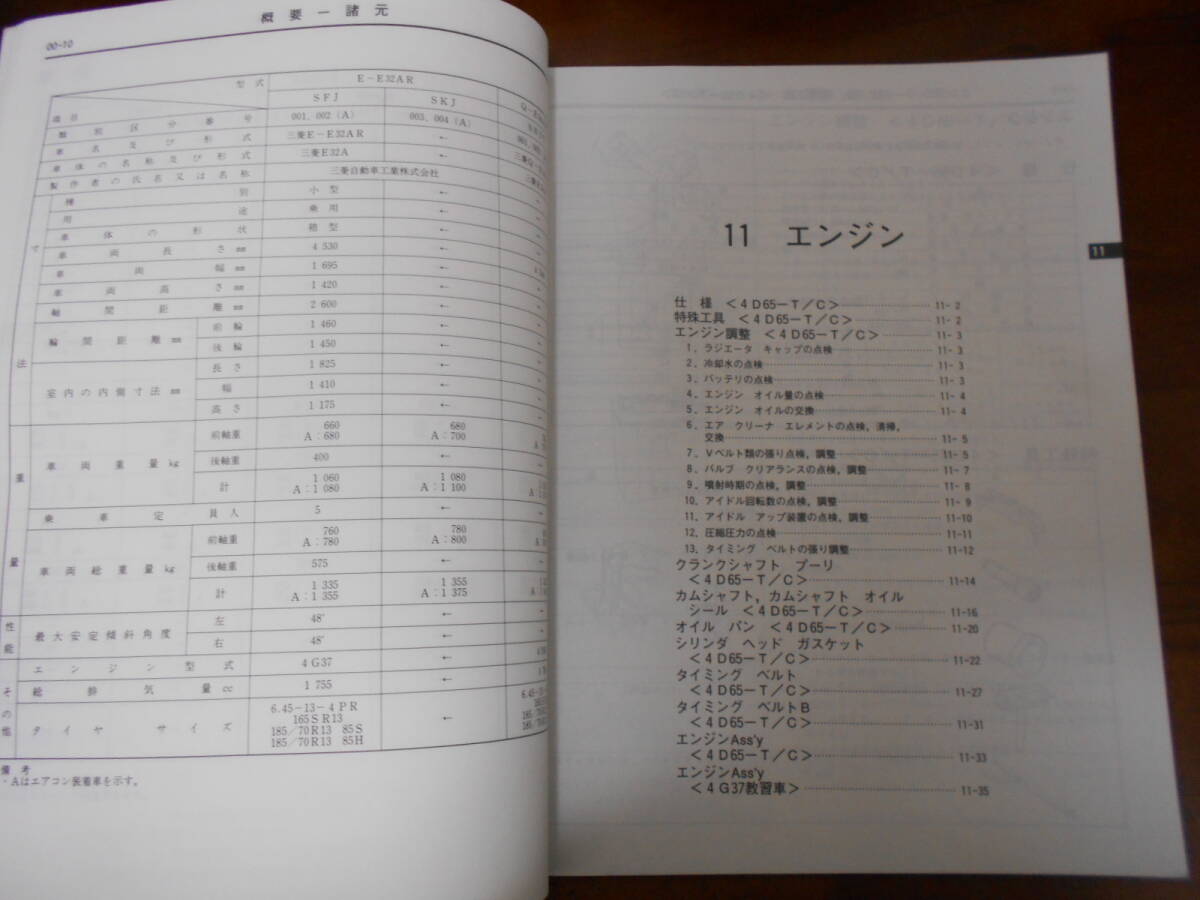 00-10
概要－諸元
型式
E－E32AR
項目
SFJ
SKJ
類別区分番号 001, 002 (A) 003, 004 (A)
車名及び形式 三菱E－E32AR ←
車体の名称及び形式 三菱E32A ←
製作者の氏名又は名称 三菱自動車工業株式会社
寸法
種別 小型 ←
用途 乗用 ←
車体の形状 箱型 ←
車両長さmm 4 530 ←
車両幅mm 1 695 ←
車両高さmm 1 420 ←
軸間距離mm 2 600 ←
輪間距離mm 前輪 1 460 ←
後輪 1 450 ←
室内の内側寸法mm 長さ 1 825 ←
幅 1 410 ←
高さ 1 175 ←
重量
車両重量kg 前軸重 660 A：680 680 A：700
後軸重 400 ←
計 1 060 A：1 080 1 080 A：1 100
乗車定員人 5 ←
車両総重量kg 前軸重 760 A：780 780 A：800
後軸重 575 ←
計 1 335 A：1 355 1 355 A：1 375
性能
最大安定傾斜角度 左 48° ←
右 48° ←
その他
エンジン型式 4G37 ←
総排気量cc 1 755 ←
タイヤサイズ 6.45－13－4PR ←
165SR13
185／70R13 85S
185／70R13 85H
備考
・Aはエアコン装着車を示す。
11 エンジン
11
仕様 ＜4D65－T／C＞ 11- 2
特殊工具 ＜4D65－T／C＞ 11- 2
エンジン調整 ＜4D65－T／C＞ 11- 3
1. ラジエータ キャップの点検 11- 3
2. 冷却水の点検 11- 3
3. バッテリの点検 11- 3
4. エンジン オイル量の点検 11- 4
5. エンジン オイルの交換 11- 4
6. エア クリーナ エレメントの点検，清掃，
交換 11- 5
7. Vベルト類の張り点検，調整 11- 5
8. バルブ クリアランスの点検，調整 11- 7
9. 噴射時期の点検，調整 11- 8
10. アイドル回転数の点検，調整 11- 9
11. アイドル アップ装置の点検，調整 11-10
12. 圧縮圧力の点検 11-11
13. タイミング ベルトの張り調整 11-12
クランクシャフト プーリ
＜4D65－T／C＞ 11-14
カムシャフト，カムシャフト オイル
シール ＜4D65－T／C＞ 11-16
オイル パン ＜4D65－T／C＞ 11-20
シリンダ ヘッド ガスケット
＜4D65－T／C＞ 11-22
タイミング ベルト
＜4D65－T／C＞ 11-27
タイミング ベルトB
＜4D65－T／C＞ 11-31
エンジンAss'y
＜4D65－T／C＞ 11-33
エンジンAss'y
＜4G37教習車＞ 11-35